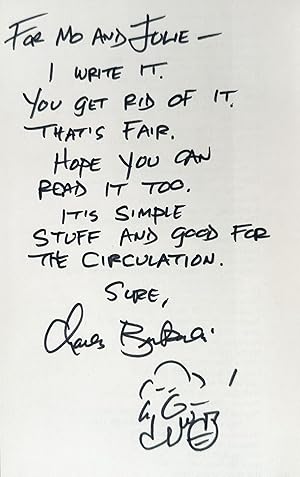 FOR MO AND JULIE —
I WRITE IT.
YOU GET RID OF IT.
THAT'S FAIR.
HOPE YOU CAN
READ IT TOO.
IT'S SIMPLE
STUFF AND GOOD FOR
THE CIRCULATION.
SURE,
Charles Bukowski